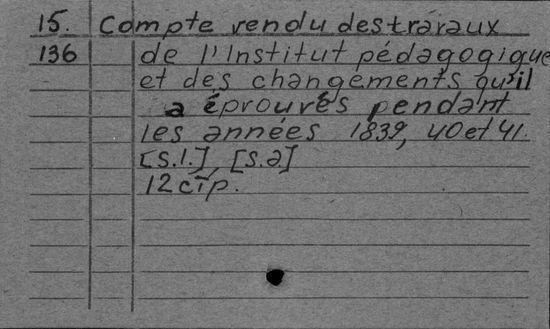 15. Compte rendu des traraux
136 de l'Institut pédagogique
et des changements qu'il
a éprouvés pendant
les années 1839, 40 et 41.
[S.l.], [S.a]
12 стр.